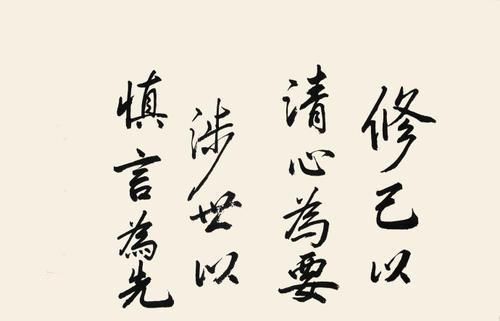 修己以
清心為要
涉世以
慎言為先